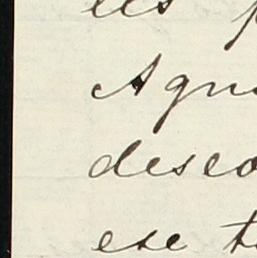 les p
Agu
deseo
ese t